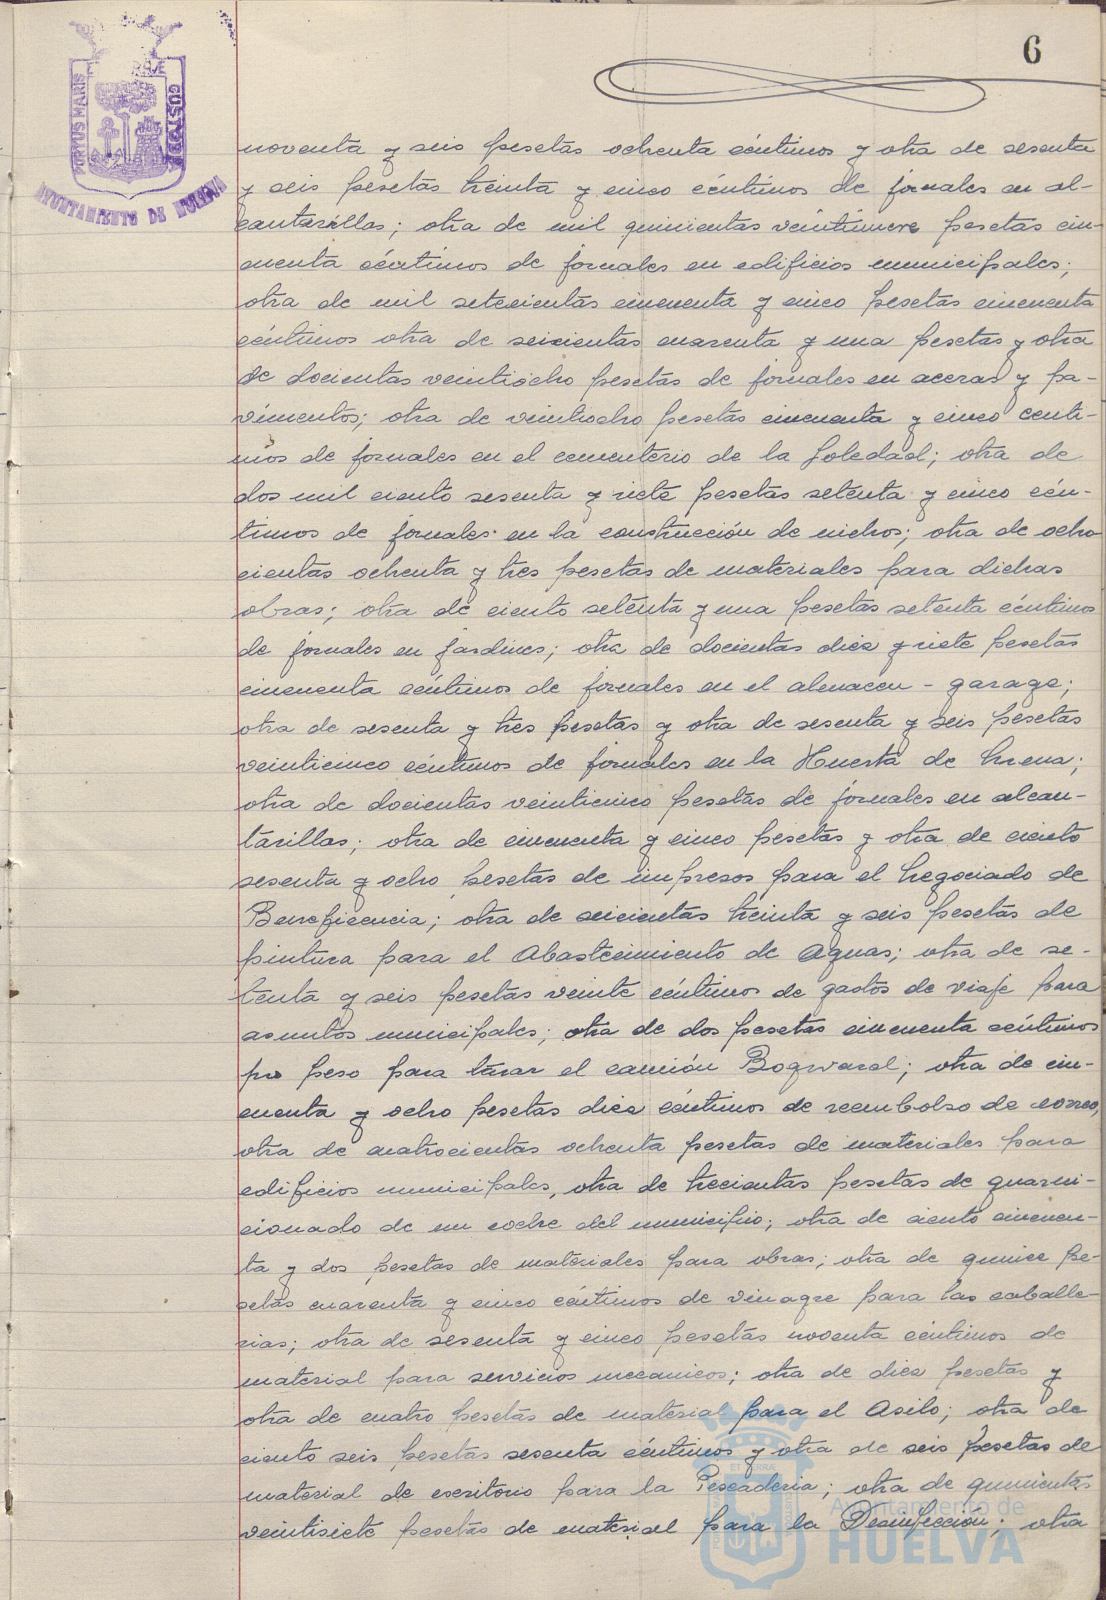 6
PORTUS MARIS ET TERRAE CUSTODIA
AYUNTAMIENTO DE HUELVA
noventa y seis pesetas ochenta céntimos y otra de sesenta
y seis pesetas treinta y cinco céntimos de jornales en al-
cantarillas; otra de mil quinientas veintinueve pesetas cin-
cuenta céntimos de jornales en edificios municipales;
otra de mil setecientas cincuenta y cinco pesetas cincuenta
céntimos otra de seicientas cuarenta y una pesetas y otra
de docientas veintiocho pesetas de jornales en aceras y pa-
vimentos; otra de veintiocho pesetas cincuenta y cinco centi-
mos de jornales en el cementerio de la Soledad; otra de
dos mil ciento sesenta y siete pesetas setenta y cinco cén-
timos de jornales en la construcción de nichos; otra de ocho
cientas ochenta y tres pesetas de materiales para dichas
obras; otra de ciento setenta y una pesetas setenta céntimos
de jornales en jardines; otra de docientas diez y siete pesetas
cincuenta céntimos de jornales en el almacen - garage;
otra de sesenta y tres pesetas y otra de sesenta y seis pesetas
veinticinco céntimos de jornales en la Huerta de Mena;
otra de docientas veinticinco pesetas de jornales en alcan-
tarillas; otra de cincuenta y cinco pesetas y otra de ciento
sesenta y ocho pesetas de impresos para el Negociado de
Beneficencia; otra de seicientas treinta y seis pesetas de
pintura para el Abastecimiento de Aguas; otra de se-
tenta y seis pesetas veinte céntimos de gastos de viaje para
asuntos municipales; otra de dos pesetas cincuenta céntimos
por peso para tarar el camión Bogward; otra de cin-
cuenta y ocho pesetas diez céntimos de reembolso de correo,
otra de cuatrocientas ochenta pesetas de materiales para
edificios municipales, otra de trecientas pesetas de guarni-
cionado de un coche del municipio; otra de ciento cincuen-
ta y dos pesetas de materiales para obras; otra de quince pe-
setas cuarenta y cinco céntimos de vinagre para las caballe-
rias; otra de sesenta y cinco pesetas noventa céntimos de
material para servicios mecanicos; otra de diez pesetas y
otra de cuatro pesetas de material para el Asilo; otra de
ciento seis pesetas sesenta céntimos y otra de seis pesetas de
material de escritorio para la Pescaderia; otra de quinientas
veintisiete pesetas de material para la Desinfección; otra
Ayuntamiento de
HUELVA